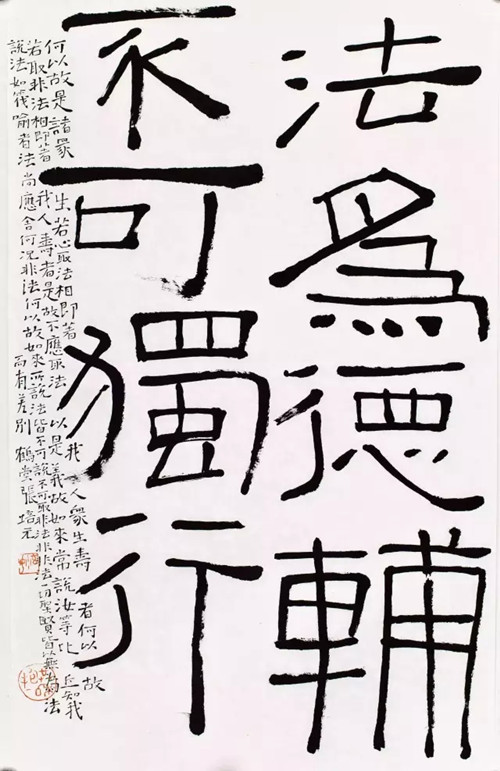 法爲德輔
不可獨行
何以故是諸衆生若心取法相即著我人衆生壽者何以故
若取非法相即著我人壽者是故不應取法以是義故如來常說汝等比丘知我
說法如筏喻者法尚應舍何況非法何以故如來所說法皆不可說不可取非法非非法一切聖賢皆以無爲法
而有差別 鶴堂張培元